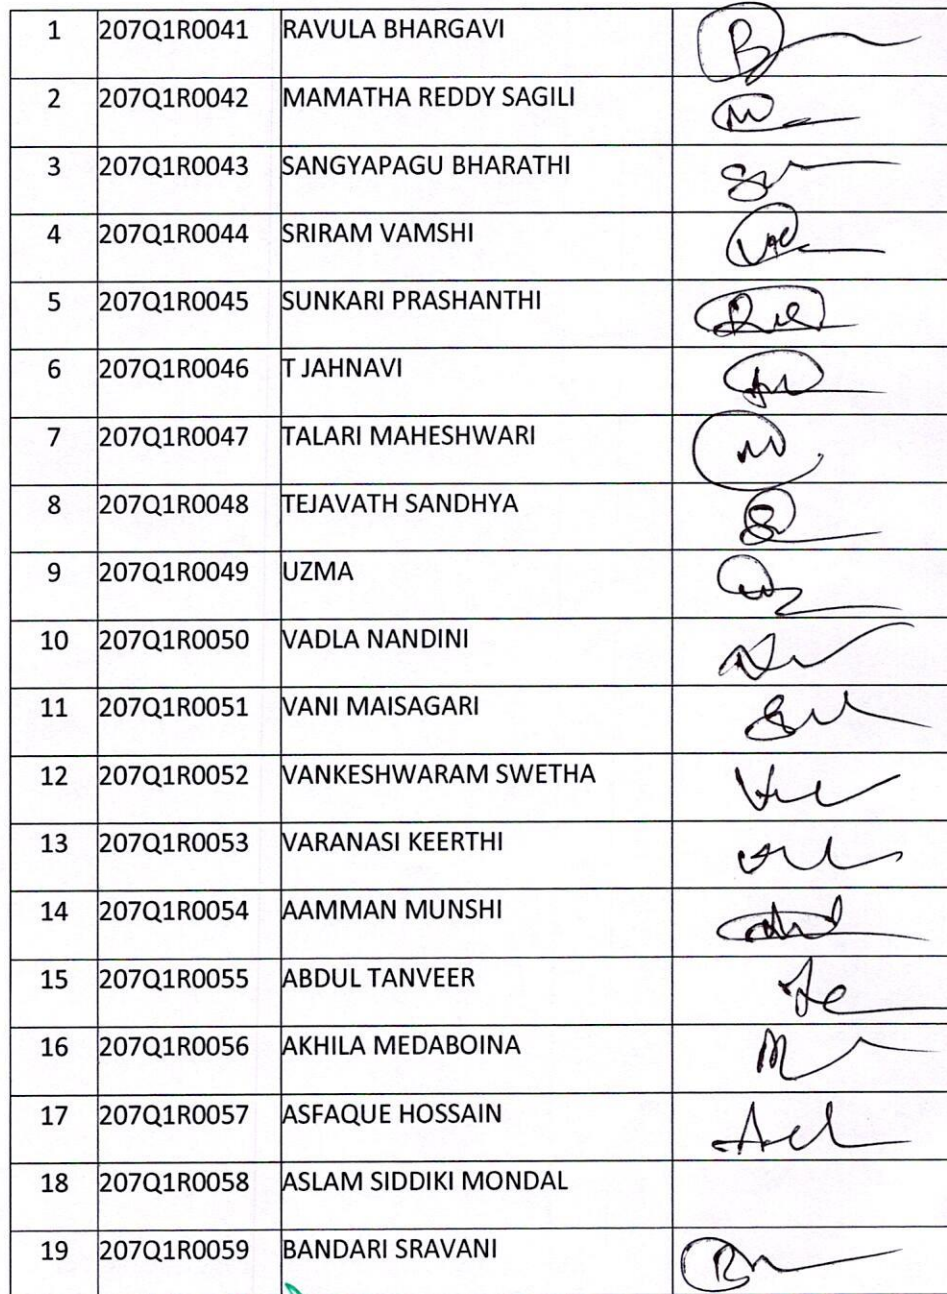 1 207Q1R0041 RAVULA BHARGAVI
2 207Q1R0042 MAMATHA REDDY SAGILI
3 207Q1R0043 SANGYAPAGU BHARATHI
4 207Q1R0044 SRIRAM VAMSHI
5 207Q1R0045 SUNKARI PRASHANTHI
6 207Q1R0046 T JAHNAVI
7 207Q1R0047 TALARI MAHESHWARI
8 207Q1R0048 TEJAVATH SANDHYA
9 207Q1R0049 UZMA
10 207Q1R0050 VADLA NANDINI
11 207Q1R0051 VANI MAISAGARI
12 207Q1R0052 VANKESHWARAM SWETHA
13 207Q1R0053 VARANASI KEERTHI
14 207Q1R0054 AAMMAN MUNSHI
15 207Q1R0055 ABDUL TANVEER
16 207Q1R0056 AKHILA MEDABOINA
17 207Q1R0057 ASFAQUE HOSSAIN
18 207Q1R0058 ASLAM SIDDIKI MONDAL
19 207Q1R0059 BANDARI SRAVANI